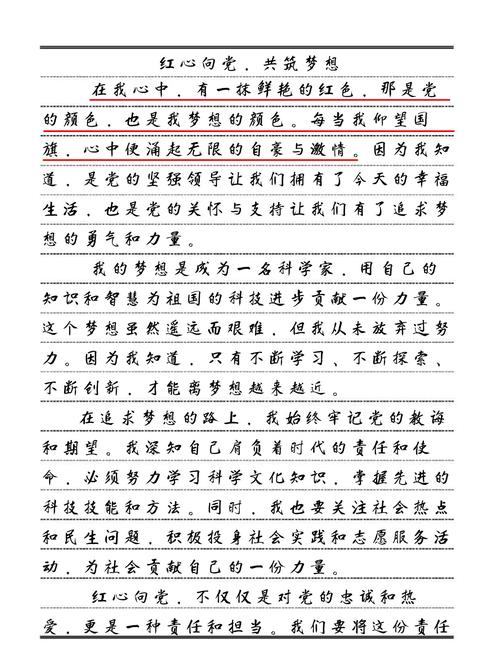 红心向党，共筑梦想
在我心中，有一抹鲜艳的红色，那是党
的颜色，也是我梦想的颜色。每当我仰望国
旗，心中便涌起无限的自豪与激情。因为我知
道，是党的坚强领导让我们拥有了今天的幸福
生活，也是党的关怀与支持让我们有了追求梦
想的勇气和力量。
我的梦想是成为一名科学家，用自己的
知识和智慧为祖国的科技进步贡献一份力量。
这个梦想虽然遥远而艰难，但我从未放弃过努
力。因为我知道，只有不断学习、不断探索、
不断创新，才能离梦想越来越近。
在追求梦想的路上，我始终牢记党的教诲
和期望。我深知自己肩负着时代的责任和使
命，必须努力学习科学文化知识，掌握先进的
科技技能和方法。同时，我也要关注社会热点
和民生问题，积极投身社会实践和志愿服务活
动，为社会贡献自己的一份力量。
红心向党，不仅仅是对党的忠诚和热
爱，更是一种责任和担当。我们要将这份责任